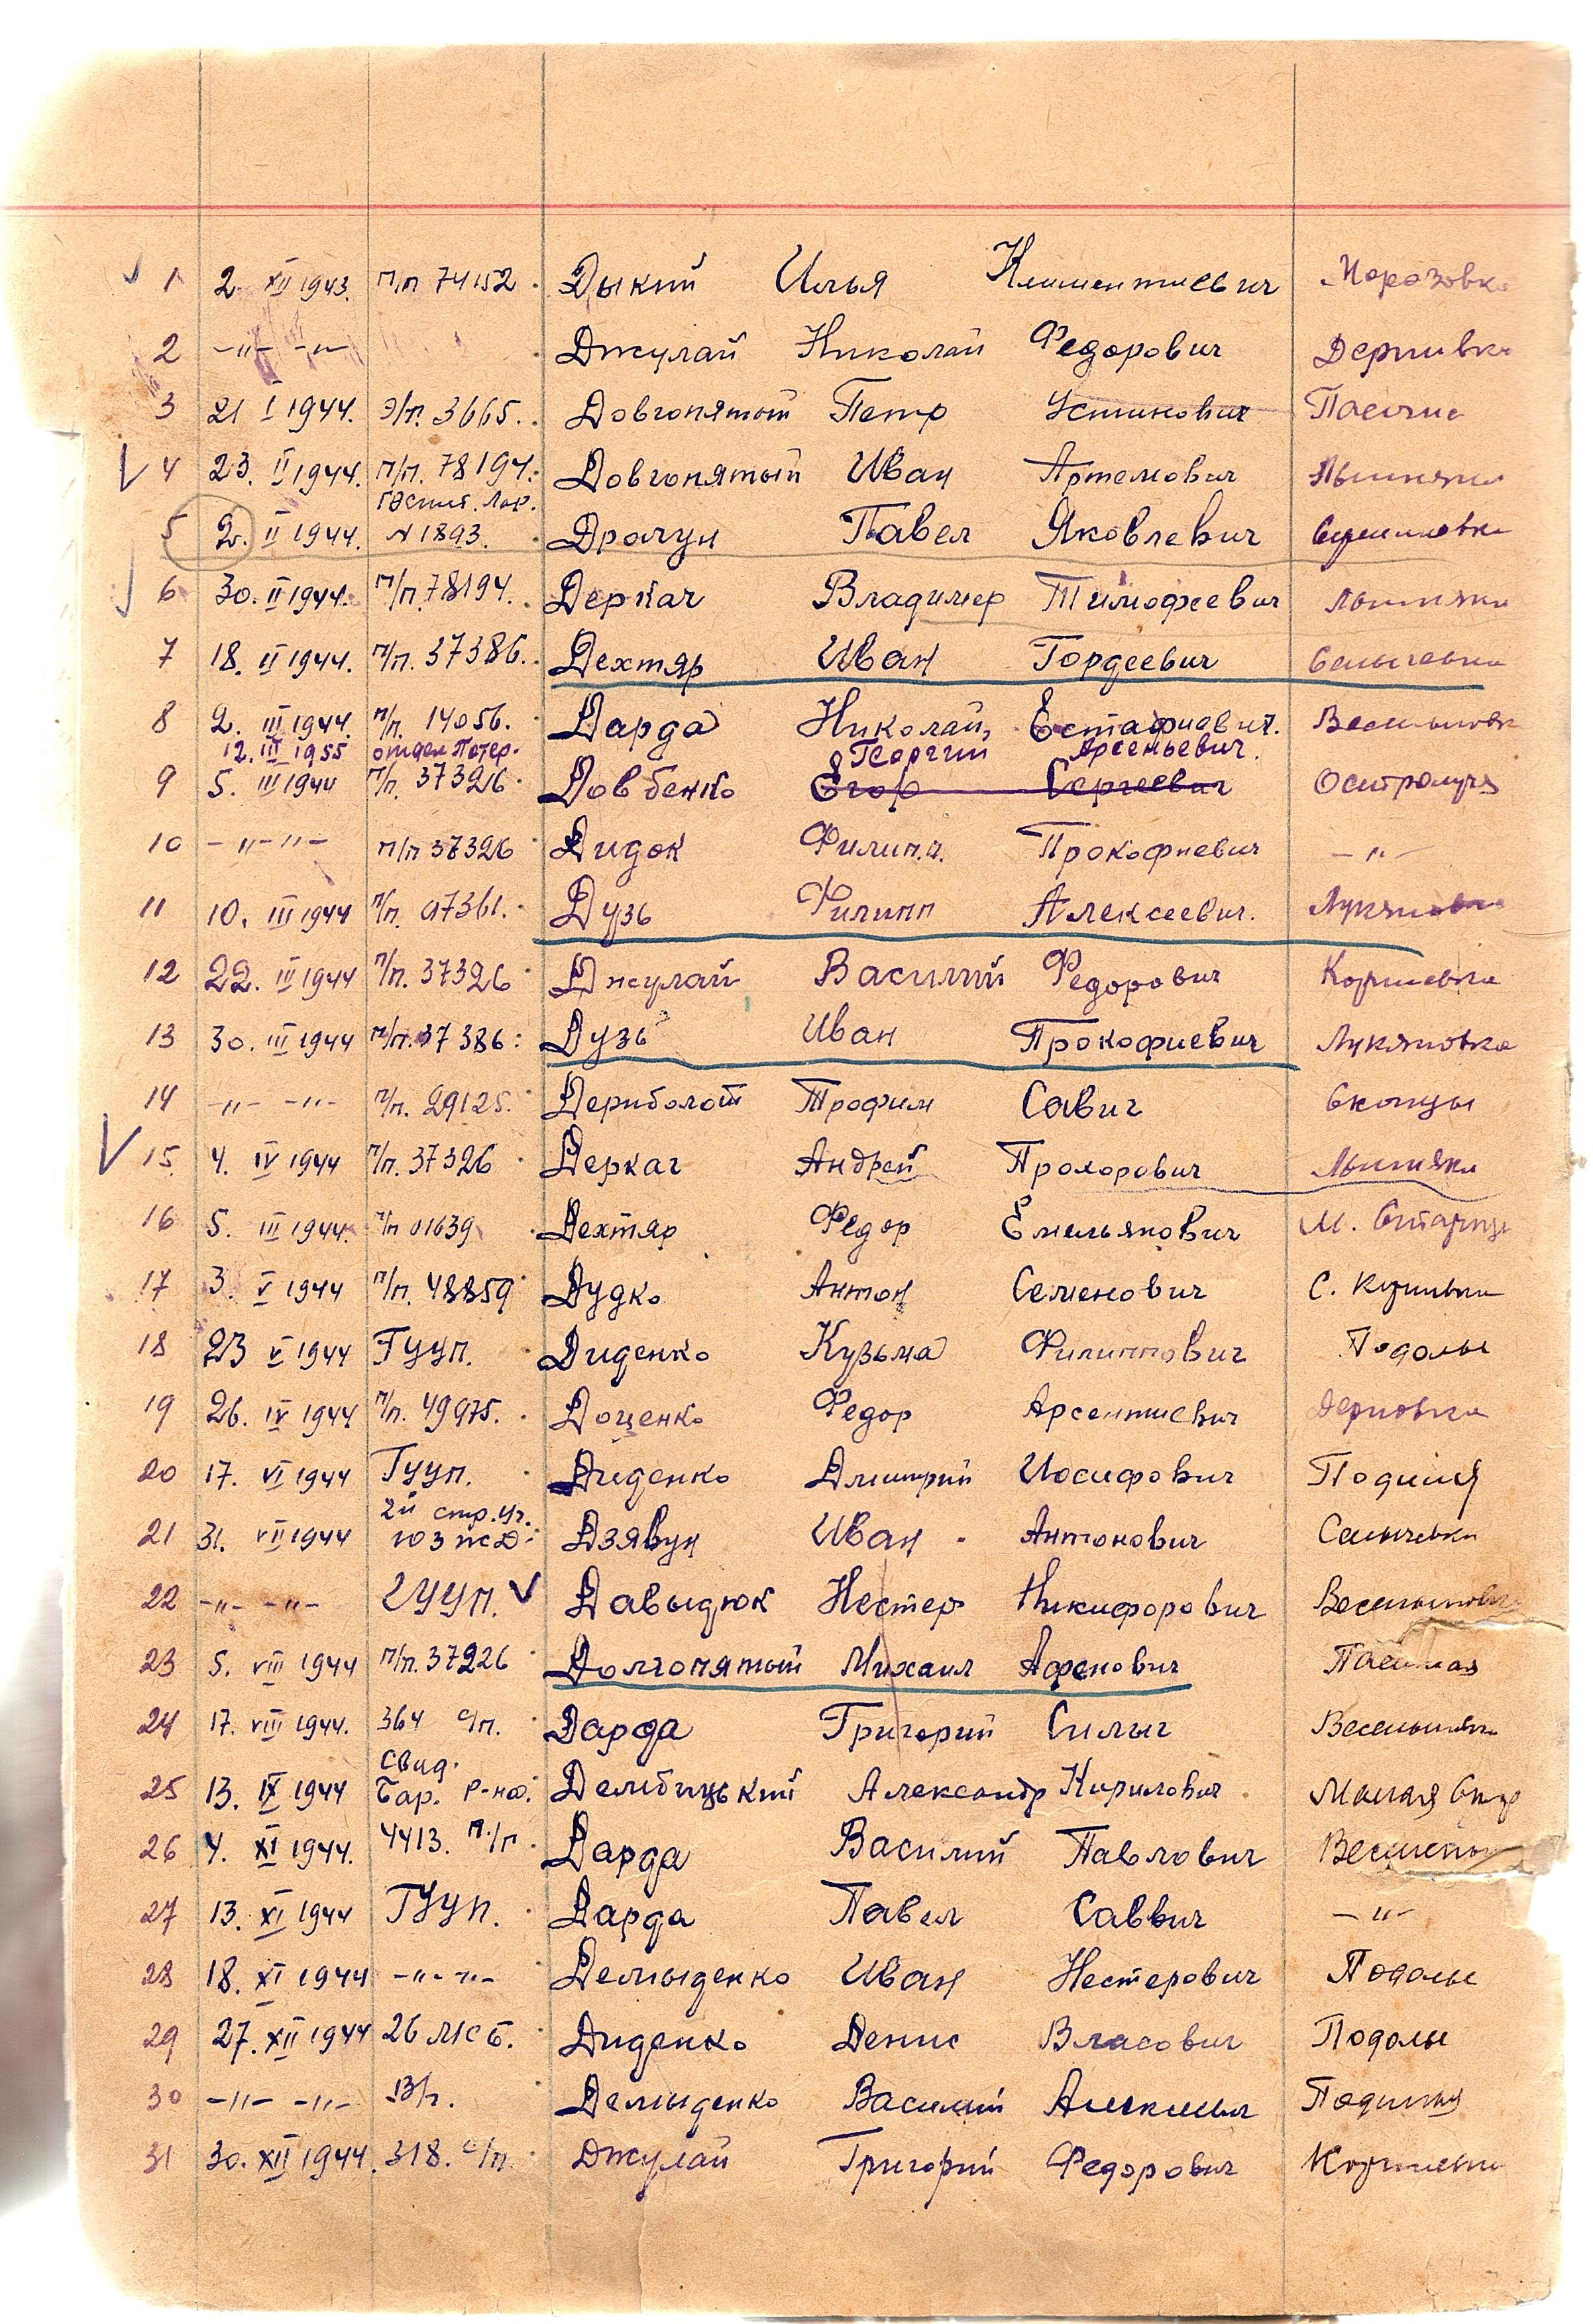 1 2. XII 1943. П/П 74152. Дыкий Илья Климентиевич Морозовка
2 —"— —"— Джулай Николай Федорович
3 21 I 1944. Э/П. 3665. Довгопятый Петр Устинович
4 23. II 1944. П/П. 78194. Довгопятый Иван Артемович
Гдспит. Лор.
5 2. II 1944. N 1893. Драчун Павел Яковлевич
6 30. II 1944. П/П. 78194. Деркач Владимер Тимофеевич
7 18. II 1944. П/П. 37386. Дехтяр Иван Гордеевич
8 2. III 1944. П/П. 14056. Дарда Николай Естафиевич.
12. III 1955 отдел Потер. Георгий Арсеньевич.
9 5. III 1944 П/П. 37326. Довбенко Егор Сергеевич
10 —"—"— П/П 37326 Дидок Филип.п. Прокофиевич —"—
11 10. III 1944 П/П. 07361. Дузь Филипп Алексеевич.
12 22. III 1944 П/П. 37326 Джулай Василий Федорович
13 30. III 1944 П/П. 37386: Дузь Иван Прокофиевич Лукяновка
14 —"— —"— П/П. 29125. Дериболот Трофим Савич
15. 4. IV 1944 П/П. 37326 Деркач Андрей Прохорович
16 5. III 1944. П/П 01639 Дехтяр Федор Емельянович М.
17 3. V 1944 П/П. 48859 Дудко Антон Семенович С.
18 23 V 1944 ГУУП. Диденко Кузьма Филиппович Подолье
19 26. IV 1944 П/П. 49975. Доценко Федор Арсентиевич
20 17. VI 1944 ГУУП. Диденко Дмитрий Иосифович
2й стр. уч.
21 31. VII 1944 ЮЗ ЖД. Дзявун Иван Антонович
22 —"— —"— ГУУП. Давыдюк Нестер Никифорович
23 5. VIII 1944 П/П. 37226 Долгопятый Михаил Афенович
24 17. VIII 1944. 364 с/п. Дарда Григорий Силыч
Свид.
25 13. IX 1944 Бар. р-на. Дембицький Александр Кирилович Малая
26 4. XI 1944. 4413. П/П Дарда Василий Павлович
27 13. XI 1944 ГУУП. Дарда Павел Саввич —"—
28 18. XI 1944 —"—"— Демыденко Иван Нестерович Подолье
29 27. XII 1944 26 МСБ. Диденко Денис Власович Подолье
30 —"— —"— В/ч. Демыденко Василий
31 30. XII 1944. 318. с/п. Джулай Григорий Федорович